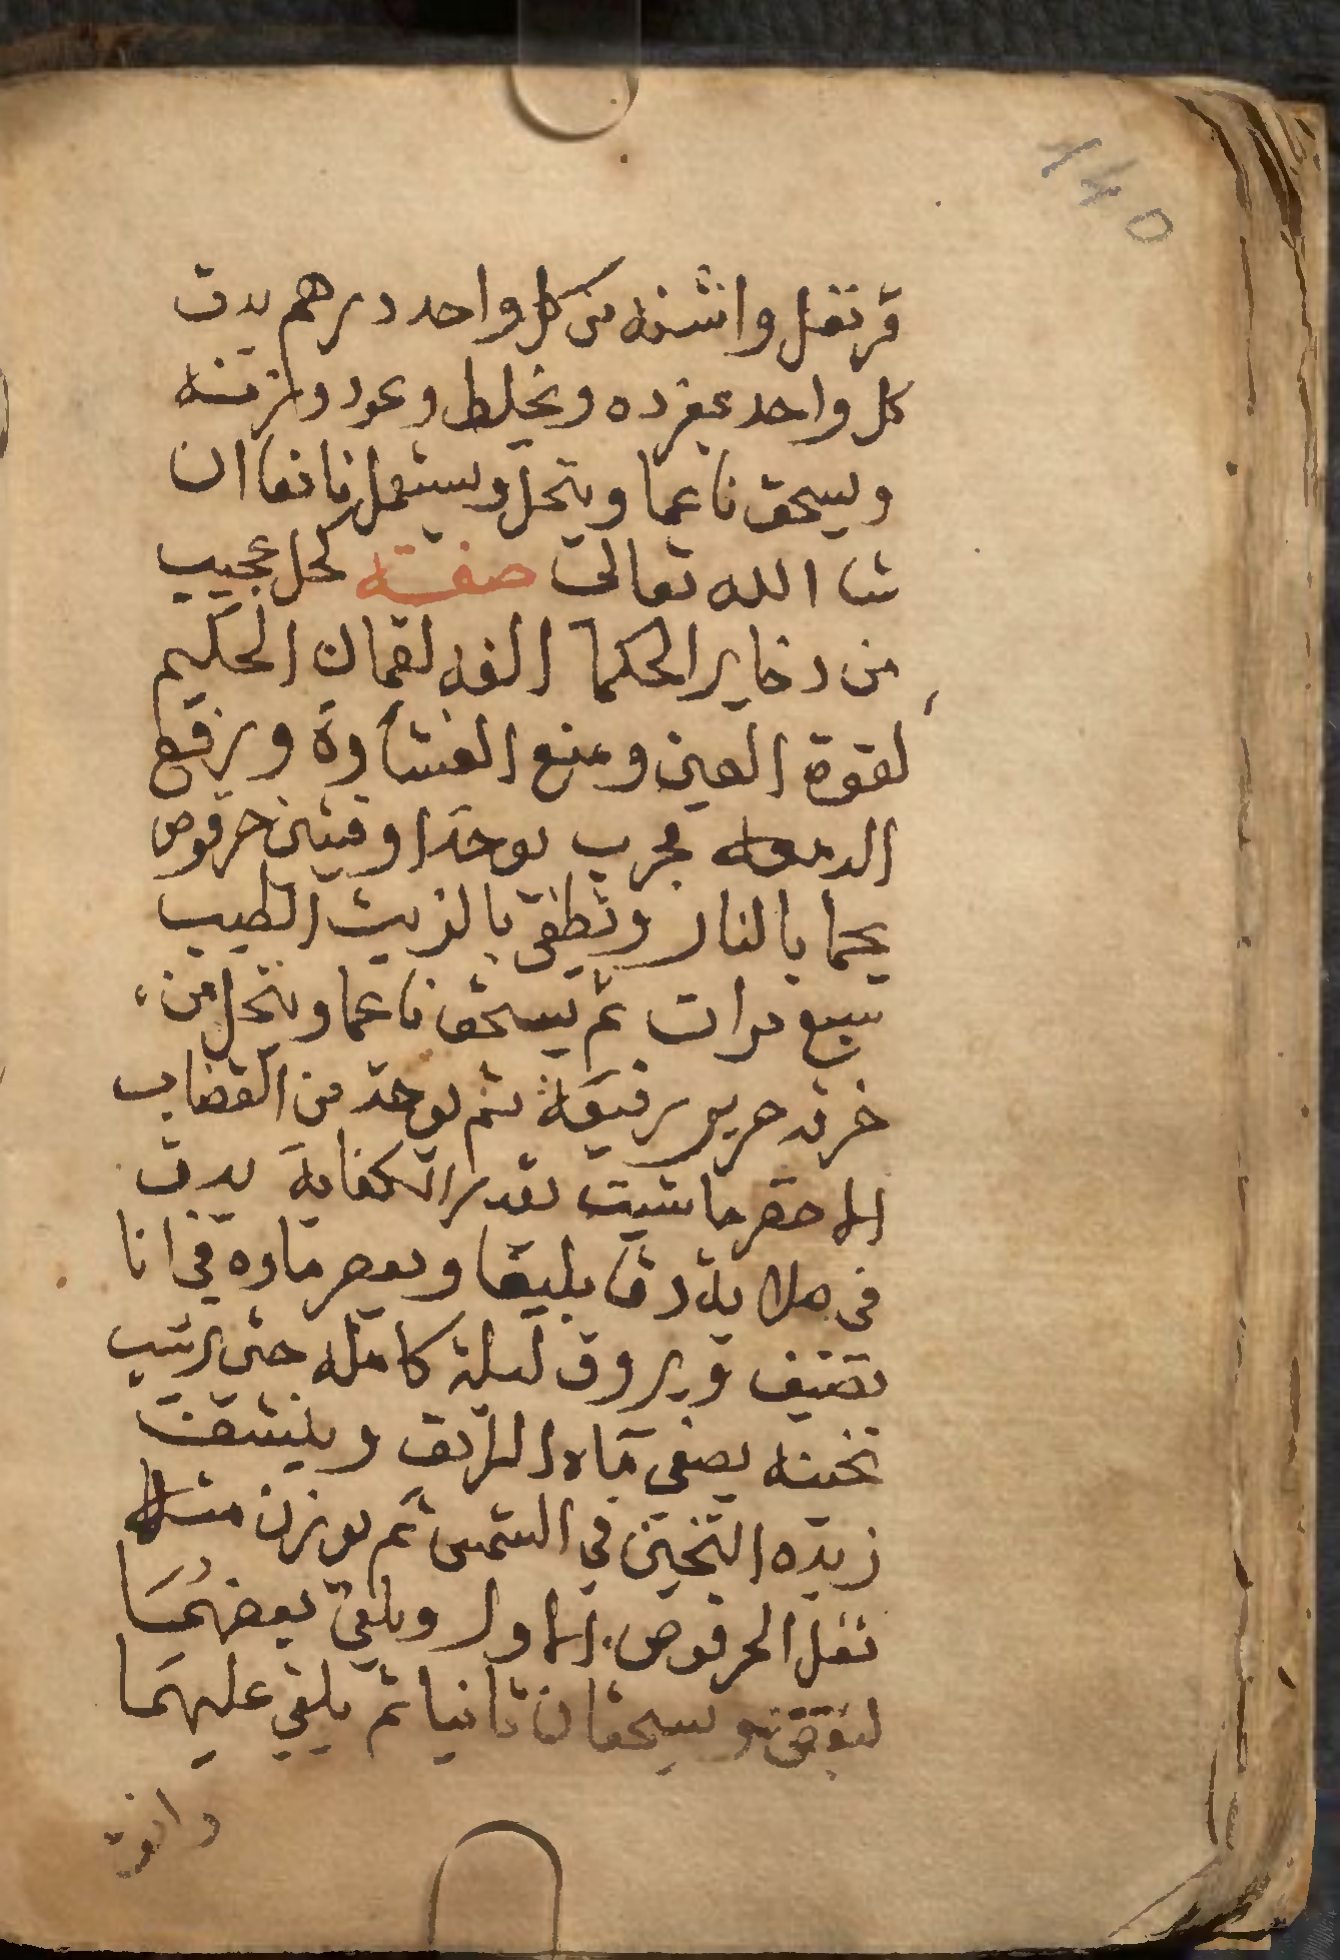 140
قرنفل واشنه من كل واحد درهم يدق
كل واحد بمفرده ويخلط وعود ولزقنه
ويسحق ناعما وينخل ويستعمل فانفا ان
شا الله تعالى صفة كحل عجيب
من دخاير الحكما الفه لقمان الحكيم
لقوة العين ومنع الغشاوة ويرفع
الدمعه مجرب يوخذ اوقيتين حرقوص
يحما بالنار ويطفى بالزيت الطيب
سبع مرات ثم يسحق ناعما وينخل من
خرقه حرير رفيعة ثم يوخذ من القضاب
الاخضر ما شيت بقدر الكفاية يدق
في صلاية دقا بليغا ويعصر ماوه في انا
نضيف ويروق ليلة كامله حتى يرسب
تخينه يصفى ماه الرايق وينشف
زبده التخين في الشمس ثم يوزن مثله
تفل الحرقوص الاول ويلقى بعضهما
لبعض ويسحقان ثانيا ثم يلقي عليهما